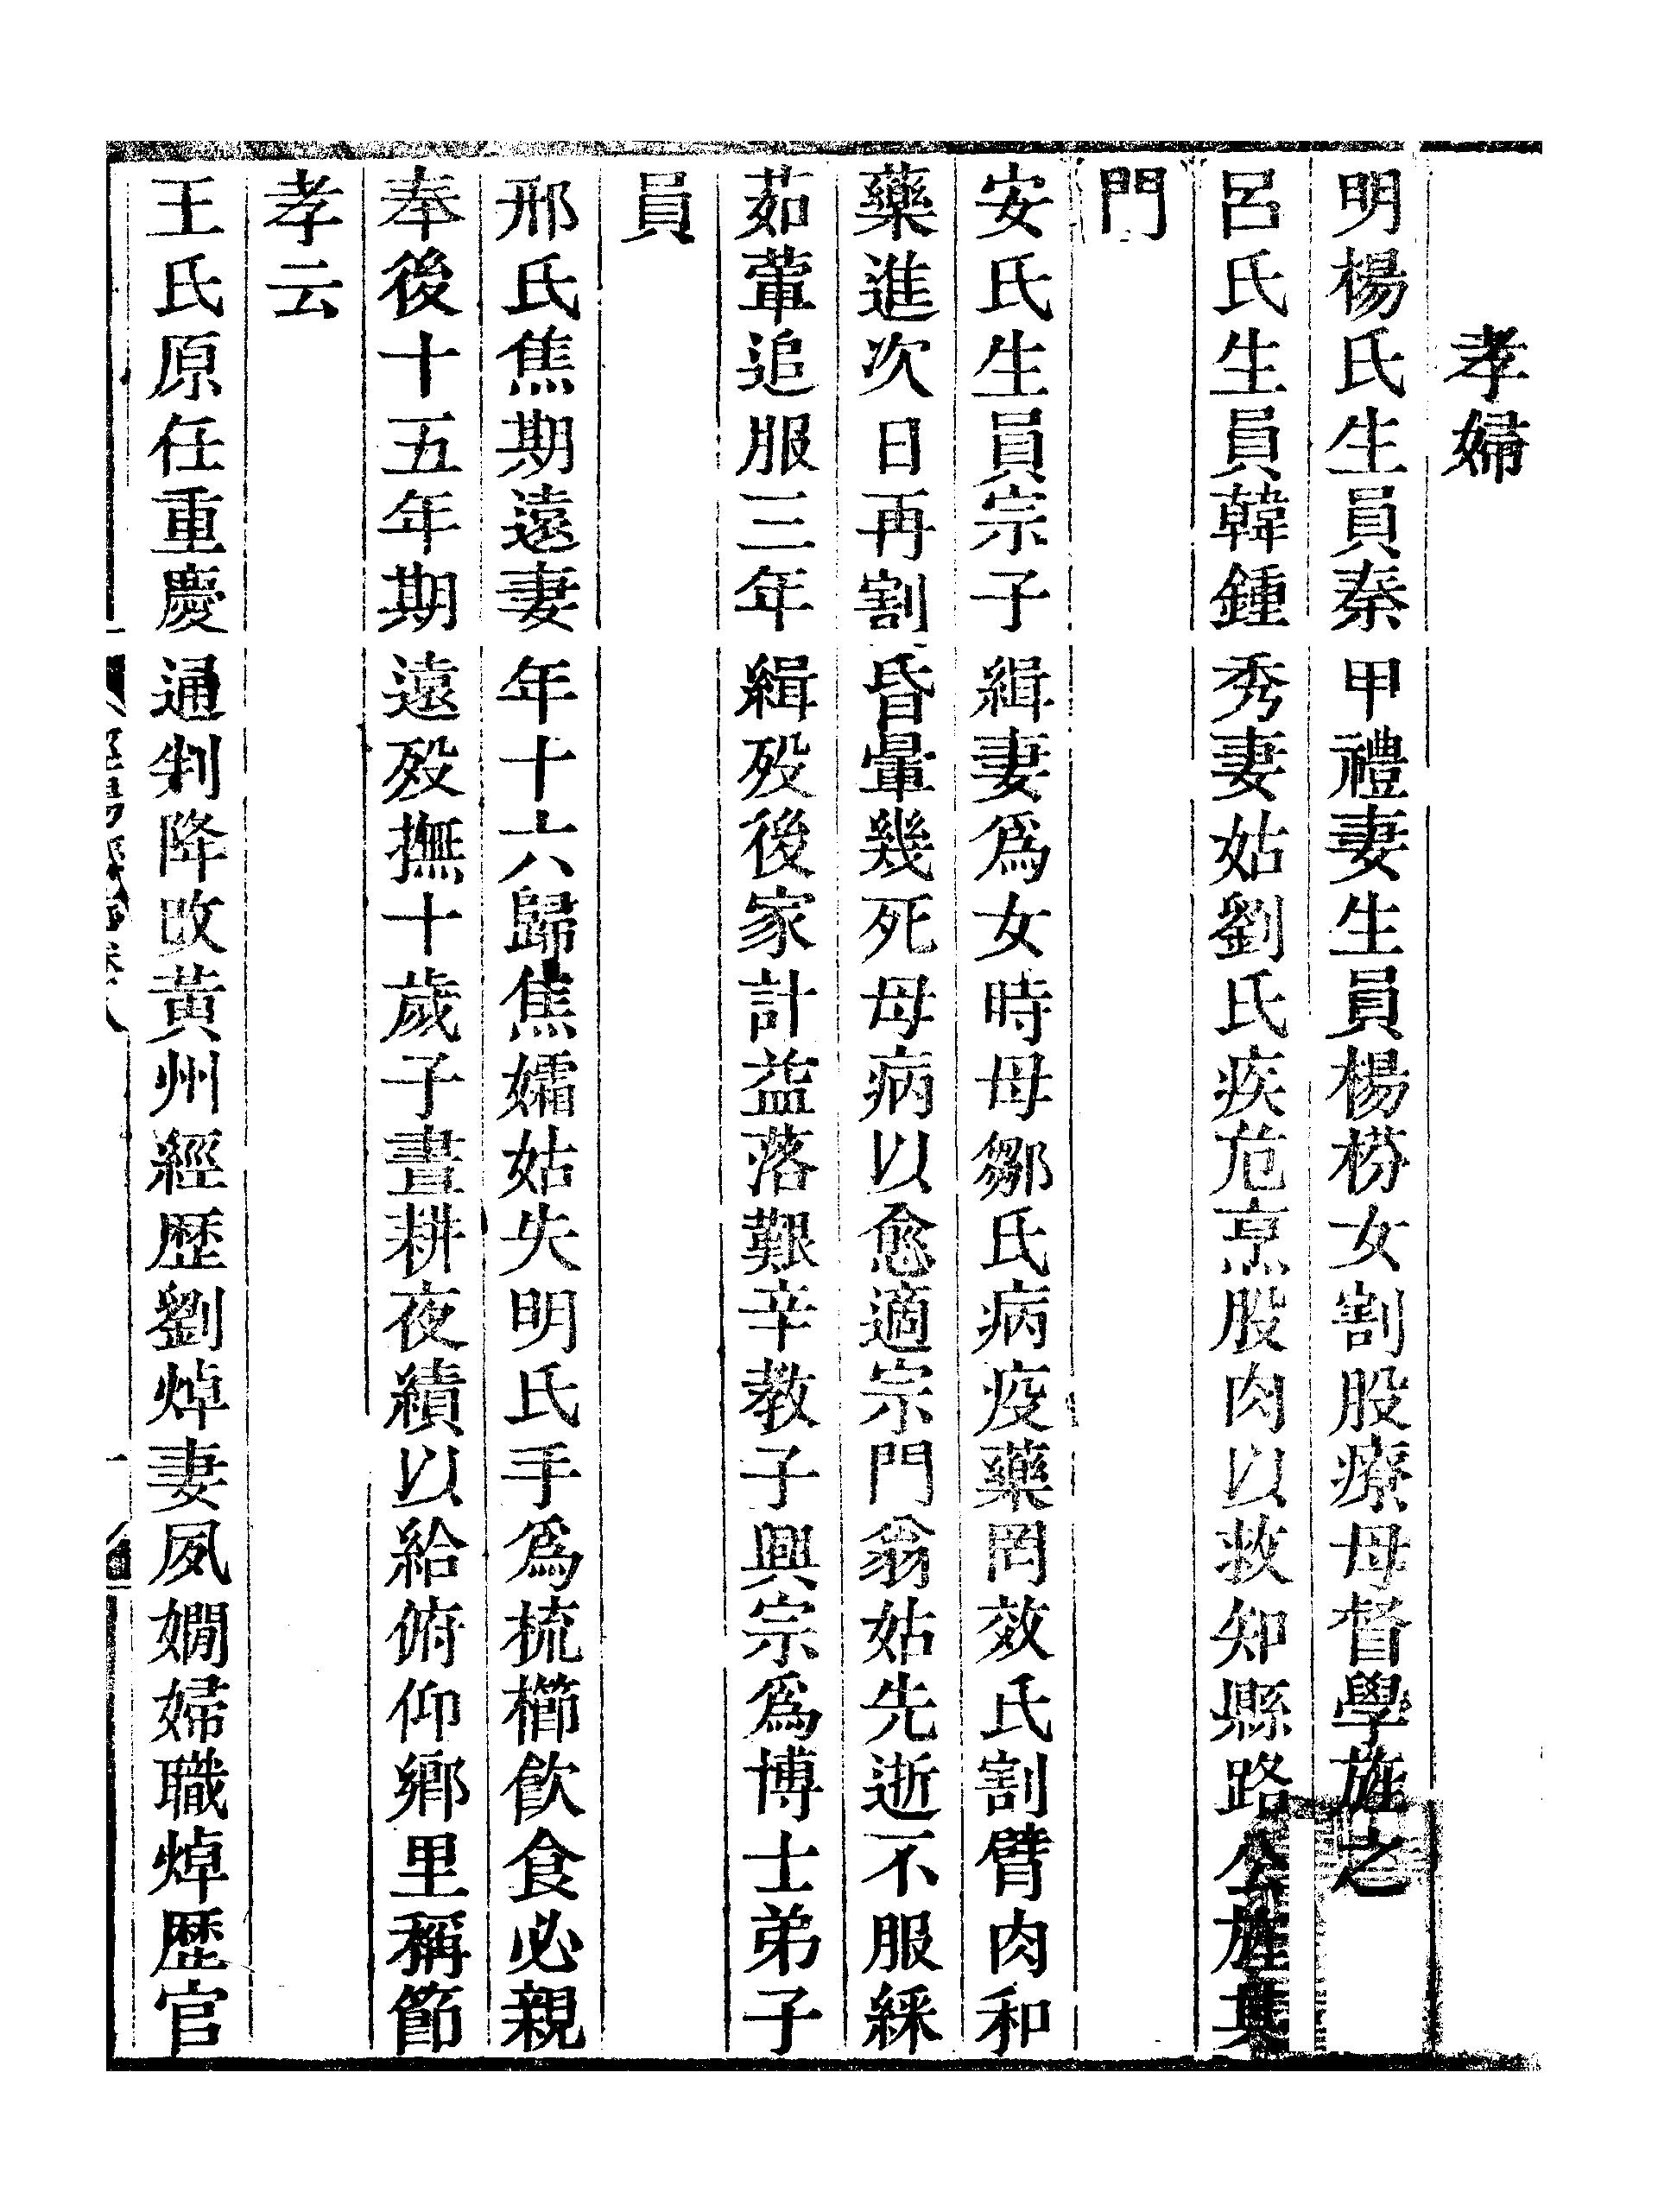 孝婦
明楊氏生員秦甲禮妻生員楊枌女割股療母督學旌之
呂氏生員韓鍾秀妻姑劉氏疾危烹股肉以救知縣路公旌其
門
安氏生員宗子緝妻爲女時母鄒氏病疫藥罔效氏割臂肉和
藥進次日再割昏暈幾死母病以愈適宗門翁姑先逝不服綵
茹葷追服三年緝歿後家計益落艱辛教子興宗爲博士弟子
員
邢氏焦期遠妻年十六歸焦孀姑失明氏手爲梳櫛飲食必親
奉後十五年期遠歿撫十歲子晝耕夜績以給俯仰鄉里稱節
孝云
王氏原任重慶通判降改黃州經歷劉焯妻夙嫺婦職焯歷官